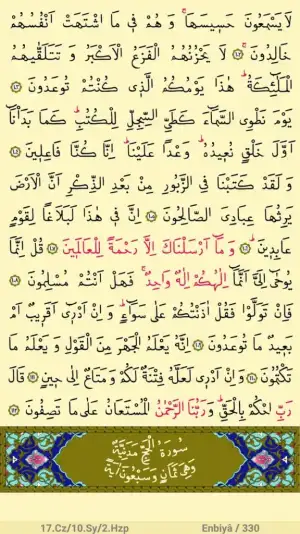 لَا يَسْمَعُونَ حَسٖيسَهَاۚ وَ هُمْ فٖى مَا اشْتَهَتْ اَنْفُسُهُمْ
خَالِدُونَۚ ﴿١٠٢﴾ لَا يَحْزُنُهُمُ الْفَزَعُ الْاَكْبَرُ وَ تَتَلَقّٰيهُمُ
الْمَلٰٓئِكَةُؕ هٰذَا يَوْمُكُمُ الَّذٖى كُنْتُمْ تُوعَدُونَ ﴿١٠٣﴾
يَوْمَ نَطْوِى السَّمَٓاءَ كَطَىِّ السِّجِلِّ لِلْكُتُبِؕ كَمَا بَدَأْنَٓا
اَوَّلَ خَلْقٍ نُعٖيدُهُؕ وَعْدًا عَلَيْنَاؕ اِنَّا كُنَّا فَاعِلٖينَ ﴿١٠٤﴾
وَ لَقَدْ كَتَبْنَا فِى الزَّبُورِ مِنْ بَعْدِ الذِّكْرِ اَنَّ الْاَرْضَ
يَرِثُهَا عِبَادِىَ الصَّالِحُونَ ﴿١٠٥﴾ اِنَّ فٖى هٰذَا لَبَلَاغًا لِقَوْمٍ
عَابِدٖينَؕ ﴿١٠٦﴾ وَ مَٓا اَرْسَلْنَاكَ اِلَّا رَحْمَةً لِلْعَالَمٖينَ ﴿١٠٧﴾ قُلْ اِنَّمَا
يُوحٰٓى اِلَىَّ اَنَّمَٓا اِلٰهُكُمْ اِلٰهٌ وَاحِدٌۚ فَهَلْ اَنْتُمْ مُسْلِمُونَ ﴿١٠٨﴾
فَاِنْ تَوَلَّوْا فَقُلْ اٰذَنْتُكُمْ عَلٰى سَوَٓاءٍؕ وَ اِنْ اَدْرٖٓى اَقَرٖيبٌ اَمْ
بَعٖيدٌ مَا تُوعَدُونَ ﴿١٠٩﴾ اِنَّهُ يَعْلَمُ الْجَهْرَ مِنَ الْقَوْلِ وَ يَعْلَمُ مَا
تَكْتُمُونَ ﴿١١٠﴾ وَ اِنْ اَدْرٖى لَعَلَّهُ فِتْنَةٌ لَكُمْ وَ مَتَاعٌ اِلٰى حٖينٍ ﴿١١١﴾ قَالَ
رَبِّ احْكُمْ بِالْحَقِّؕ وَ رَبُّنَا الرَّحْمٰنُ الْمُسْتَعَانُ عَلٰى مَا تَصِفُونَ ﴿١١٢﴾
سُورَةُ الْحَجِّ مَدَنِيَّةٌ
وَهِىَ ثَمَانٍ وَسَبْعُونَ اٰيَةً
17.Cz/10.Sy/2.Hzp Enbiyâ / 330